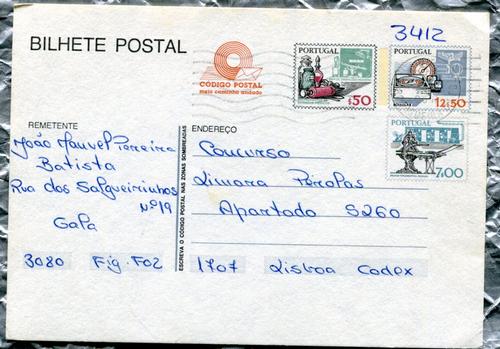 3412
BILHETE POSTAL
CÓDIGO POSTAL
meio caminho andado
PORTUGAL
$50
PORTUGAL
12$50
PORTUGAL
7$00
REMETENTE
João Manuel Pereira
Batista
Rua dos Salgueirinhos
Nº 19
Gala
3080 Fig. Foz
ESCREVA O CÓDIGO POSTAL NAS ZONAS SOMBREADAS
ENDEREÇO
Concurso
Limara Pérolas
Apartado 5260
1707 Lisboa Codex